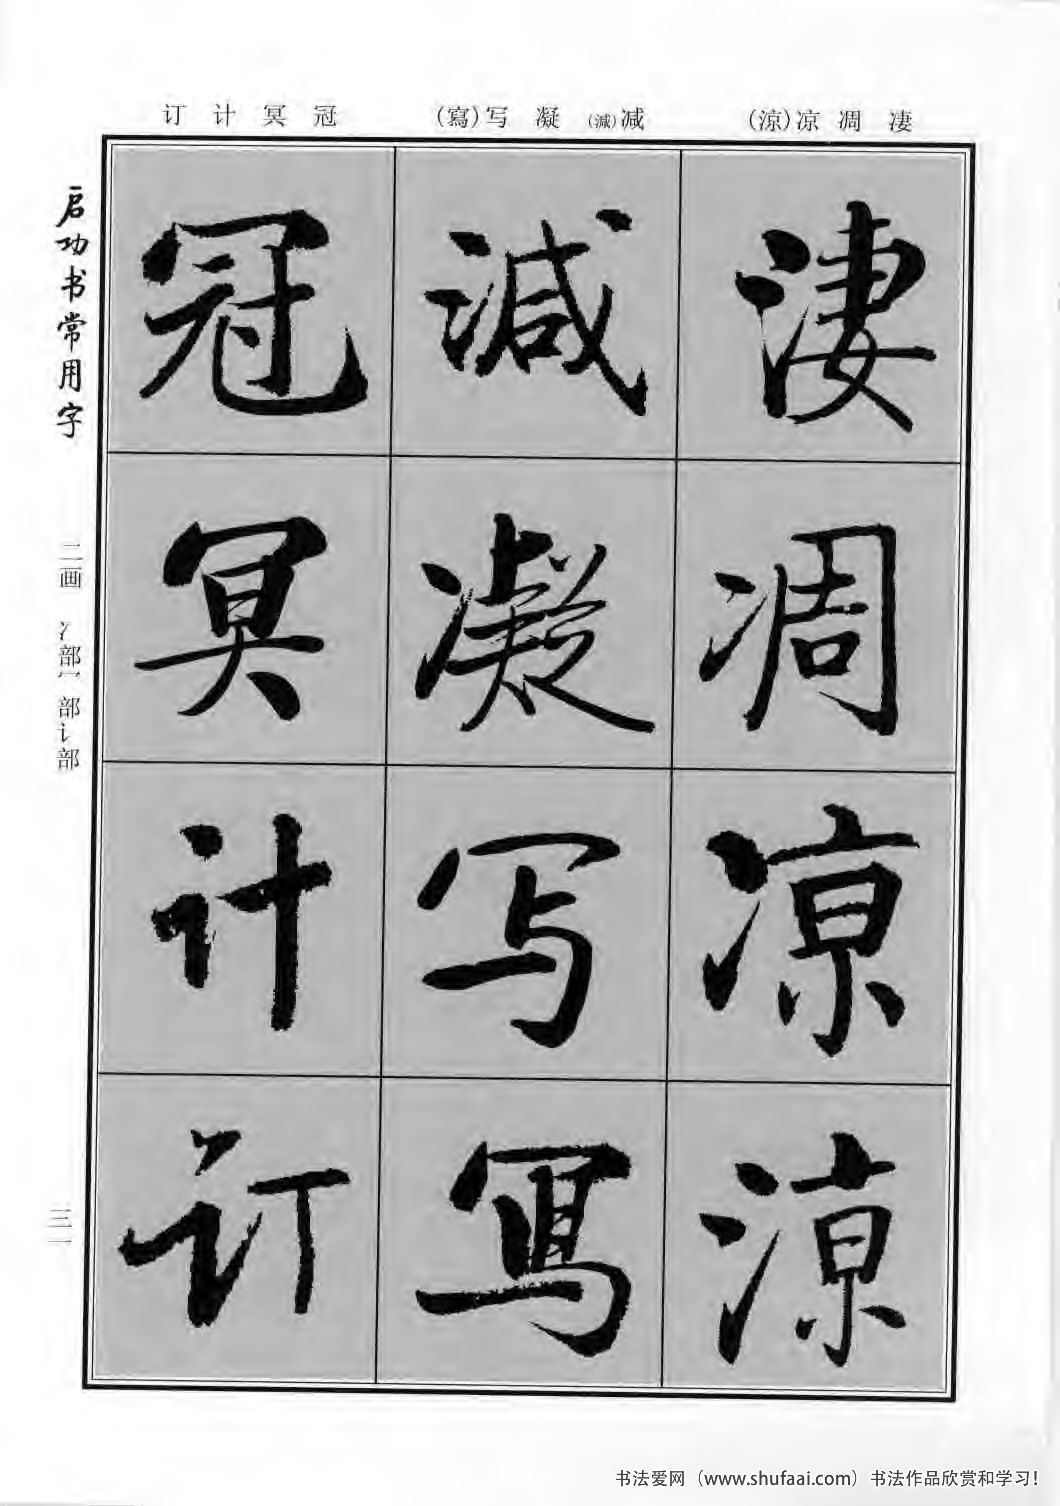 订 计 冥 冠 (寫)写 凝 (減)减 (涼)凉 凋 凄
启功书常用字
二画 冫部冖部讠部
三一
凄 凋 凉 涼
減 凝 写 寫
冠 冥 计 订
书法爱网（www.shufaai.com）书法作品欣赏和学习！